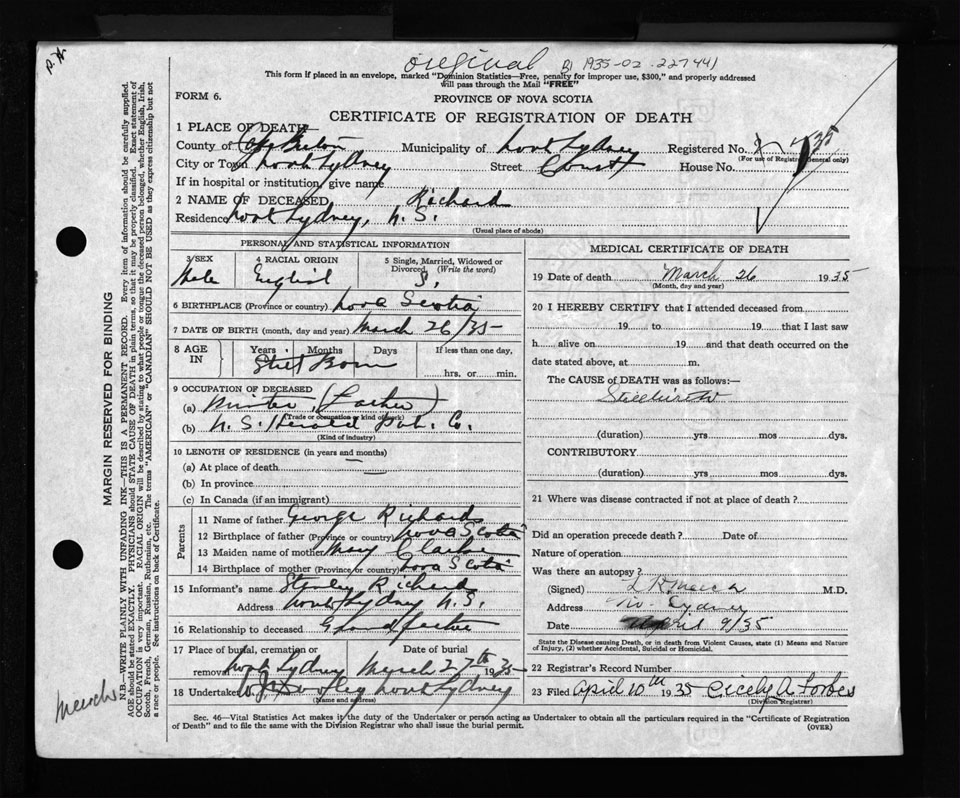 P. H
original B) 1935-02-227441
This form if placed in an envelope, marked "Dominion Statistics—Free, penalty for improper use, $300," and properly addressed
will pass through the Mail "FREE"
FORM 6.
PROVINCE OF NOVA SCOTIA
CERTIFICATE OF REGISTRATION OF DEATH
1 PLACE OF DEATH—
County of Cape Breton Municipality of North Sydney Registered No. 35
(For use of Registrar General only)
City or Town North Sydney Street Court House No.
If in hospital or institution, give name
2 NAME OF DECEASED Richard
Residence North Sydney, N. S.
(Usual place of abode)
PERSONAL AND STATISTICAL INFORMATION
3 SEX Male
4 RACIAL ORIGIN English
5 Single, Married, Widowed or Divorced (Write the word) S.
6 BIRTHPLACE (Province or country) Nova Scotia
7 DATE OF BIRTH (month, day and year) March 26/35
8 AGE IN Years Months Days If less than one day, hrs. or min.
Still Born
9 OCCUPATION OF DECEASED
(a) (Father)
(Trade or occupation or kind of work)
(b) N. S. Herald Pub. Co.
(Kind of industry)
10 LENGTH OF RESIDENCE (in years and months)
(a) At place of death —
(b) In province
(c) In Canada (if an immigrant)
Parents
11 Name of father George Richard
12 Birthplace of father (Province or country) Nova Scotia
13 Maiden name of mother Mary Clarke
14 Birthplace of mother (Province or country) Nova Scotia
15 Informant's name Stanley Richard
Address North Sydney N. S.
16 Relationship to deceased Grandfather
17 Place of burial, cremation or removal North Sydney Date of burial March 27th 1935
18 Undertaker North Sydney
(Name and address)
MEDICAL CERTIFICATE OF DEATH
19 Date of death March 26 1935
(Month, day and year)
20 I HEREBY CERTIFY that I attended deceased from
19 to 19 that I last saw
h alive on 19 and that death occurred on the
date stated above, at m.
The CAUSE of DEATH was as follows:—
Stillbirth
(duration) yrs mos dys.
CONTRIBUTORY
(duration) yrs mos dys.
21 Where was disease contracted if not at place of death?
Did an operation precede death? Date of
Nature of operation
Was there an autopsy?
(Signed) M.D.
Address No. Sydney
Date April 9/35
State the Disease causing Death, or in death from Violent Causes, state (1) Means and Nature
of Injury, (2) whether Accidental, Suicidal or Homicidal.
22 Registrar's Record Number
23 Filed April 10th 1935 Cicely A. Forbes
(Division Registrar)
Sec. 46—Vital Statistics Act makes it the duty of the Undertaker or person acting as Undertaker to obtain all the particulars required in the "Certificate of Registration
of Death" and to file the same with the Division Registrar who shall issue the burial permit. (OVER)
MARGIN RESERVED FOR BINDING
N.B.—WRITE PLAINLY WITH UNFADING INK—THIS IS A PERMANENT RECORD. Every item of information should be carefully supplied.
AGE should be stated EXACTLY. PHYSICIANS should STATE CAUSE OF DEATH in plain terms, so that it may be properly classified. Exact statement of
OCCUPATION is very important. RACIAL ORIGIN will be described by stating to what people or tongue the deceased person belonged, whether English, Irish,
Scotch, French, German, Russian, Ruthenian, etc. The terms "AMERICAN" or "CANADIAN" SHOULD NOT BE USED as they express citizenship but not
a race or people. See instructions on back of Certificate.